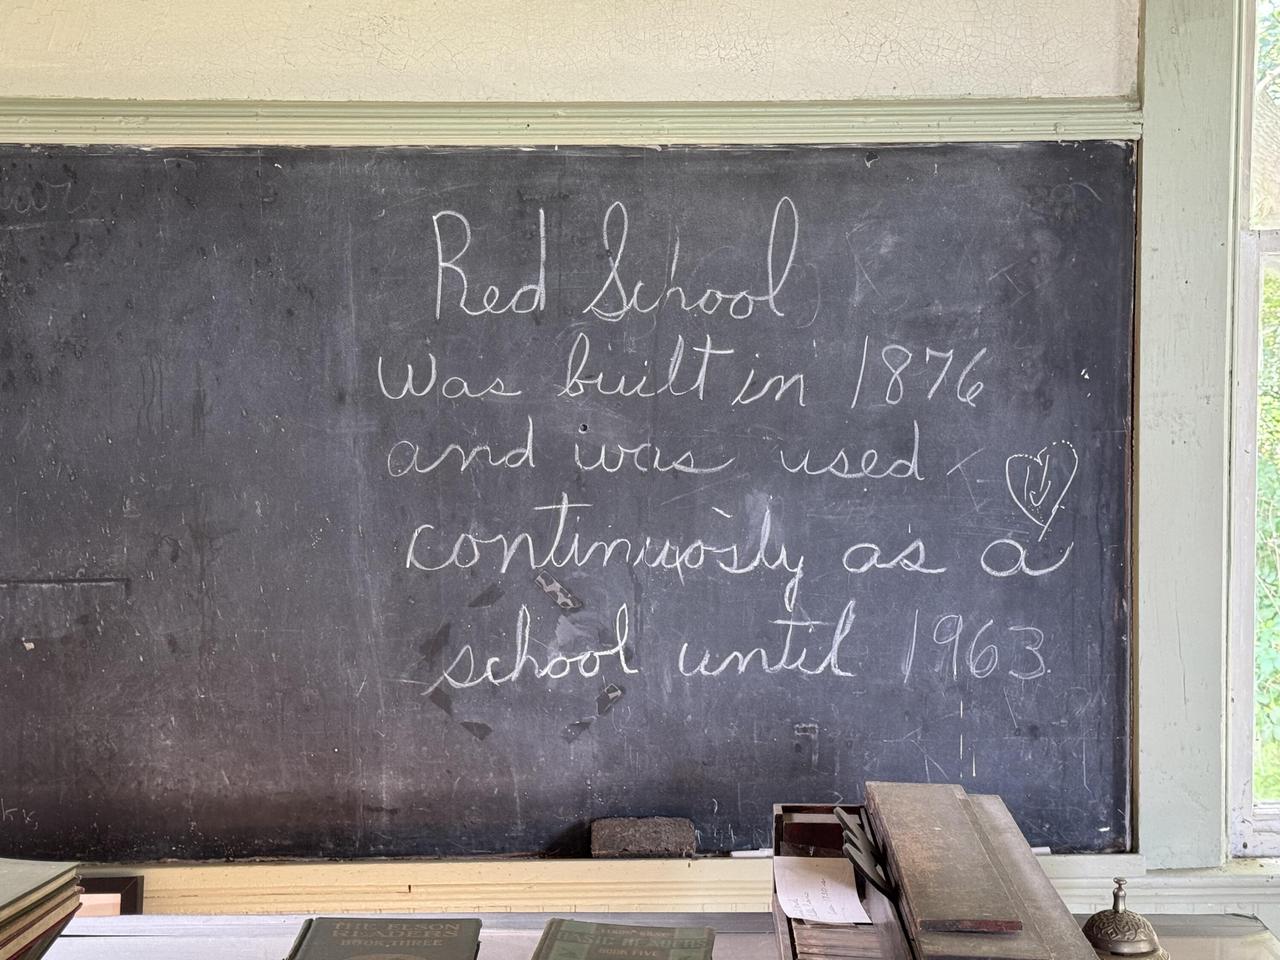 Red School
was built in 1876
and was used
continuosly as a
school until 1963.
THE ELSON
READERS
BOOK THREE
BASIC READERS
BOOK FIVE